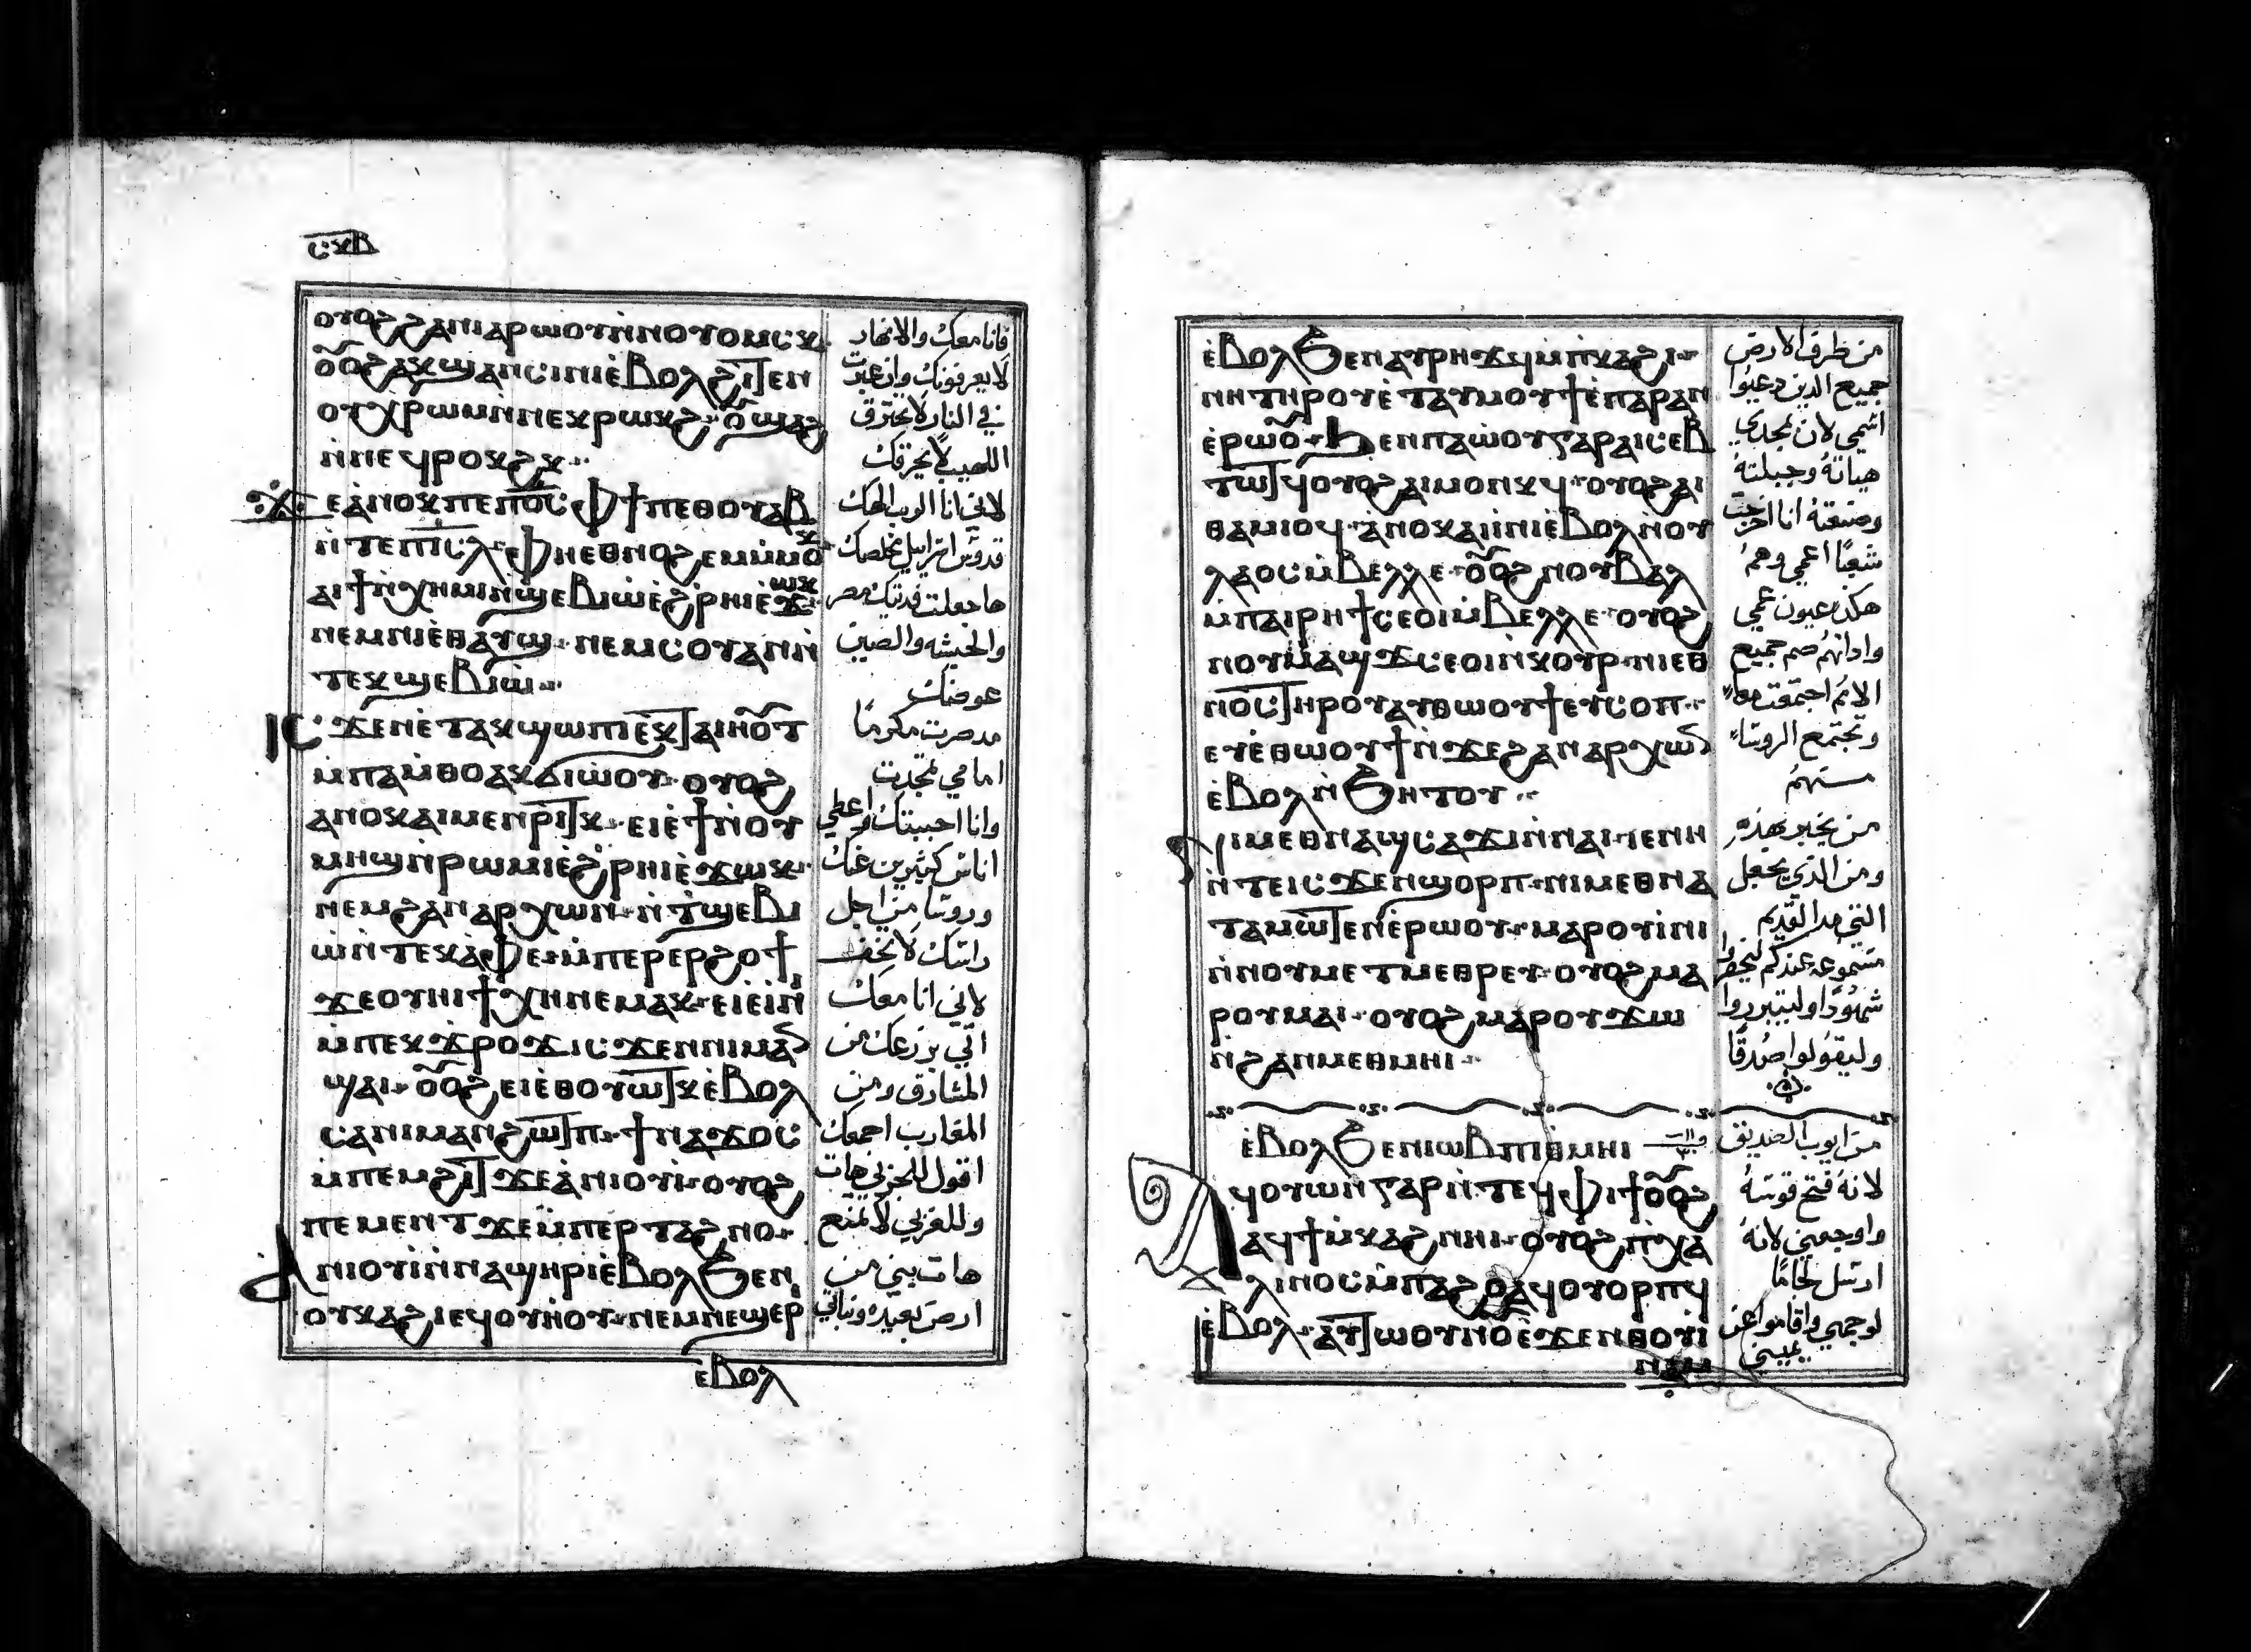 ⲥⲕⲃ
ⲟⲩⲟϩ ϩⲁⲛⲓⲁⲣⲱⲟⲩ ⲛ̀ⲛⲟⲩⲟⲙⲥⲕ
ⲟⲩⲟϩ ⲁⲕϣⲁⲛⲥⲓⲛⲓ ⲉ̀ⲃⲟⲗϩⲓⲧⲉⲛ
ⲟⲩⲭⲣⲱⲙ ⲛ̀ⲛⲉⲕⲣⲱⲕϩ ⲟ̅ ϣⲁϩ
ⲛ̀ⲛⲉϥⲣⲟⲕϩⲕ
ϫⲉ ⲁ̀ⲛⲟⲕ ⲡⲉ ⲡ⳪ ⲫϯ ⲡⲉⲑⲟⲩⲁⲃ
ⲛ̀ⲧⲉ ⲡⲓⲥ̅ⲗ ⲫⲏⲉⲑⲛⲟϩⲉⲙ ⲙ̀ⲙⲟⲕ
ⲁⲓϯ ⲛ̀ⲭⲏⲙⲓ ⲛ̀ϣⲉⲃⲓⲱ̀ ⲉ̀ϩⲣⲏⲓ ⲉ̀ϫⲱⲕ
ⲛⲉⲙ ⲛⲓⲉ̀ⲑⲁⲩϣ ⲛⲉⲙ ⲥⲟⲩⲁⲛ ⲛ̀
ⲧⲉⲕϣⲉⲃⲓⲱ̀
ⲓⲥϫⲉⲛ ⲉ̀ⲧⲁⲕϣⲱⲡⲓ ⲉⲕⲧⲁⲓⲏⲟⲩⲧ
ⲙ̀ⲡⲁⲙ̀ⲑⲟ ⲁⲕϭⲓⲱ̀ⲟⲩ ⲟⲩⲟϩ
ⲁⲛⲟⲕ ⲁⲓⲙⲉⲛⲣⲓⲧⲕ ⲉⲓⲉ̀ϯ ⲛ̀ⲟⲩ
ⲙⲏϣ ⲛ̀ⲣⲱⲙⲓ ⲉ̀ϩⲣⲏⲓ ⲉ̀ϫⲱⲕ
ⲛⲉⲙ ϩⲁⲛⲁⲣⲭⲱⲛ ⲛ̀ⲧϣⲉⲃⲓ
ⲱ̀ ⲛ̀ⲧⲉⲕⲁ̀ⲫⲉ ⲙ̀ⲡⲉⲣⲉⲣϩⲟϯ
ϫⲉ ⲟⲩⲏⲓ ϯⲭⲏ ⲛⲉⲙⲁⲕ ⲉⲓⲉ̀ⲓⲛⲓ̀
ⲙ̀ⲡⲉⲕϫⲣⲟϫ ⲓⲥϫⲉⲛ ⲛⲓⲙⲁⲛ
ϣⲁⲓ ⲟⲩⲟϩ ⲉⲓⲉ̀ⲑⲟⲩⲱⲧⲕ ⲉ̀ⲃⲟⲗ
ⲥⲁⲛⲓⲙⲁⲛϩⲱⲧⲡ ϯⲛⲁϫⲟⲥ
ⲙ̀ⲡⲉⲙϩⲓⲧ ϫⲉ ⲁ̀ⲛⲓⲟⲩⲓ̀ ⲟⲩⲟϩ
ⲡⲉⲙⲉⲛⲧ ϫⲉ ⲙ̀ⲡⲉⲣⲧⲁϩⲛⲟ
ⲁⲛⲓⲟⲩⲓ̀ ⲛ̀ⲛⲁϣⲏⲣⲓ ⲉ̀ⲃⲟⲗϧⲉⲛ
ⲟⲩⲕⲁϩⲓ ⲉϥⲟⲩⲏ̀ⲟⲩ ⲛⲉⲙ ⲛⲉϣⲉⲣ
ⲉⲃⲟⲗ
فانا معك والانهار
لا يعرفونك وان عبرت
في النار لا تحترق
اللهيب لا يحرقك
لاني انا الرب الهك
قدوس اسراييل مخلصك
ها جعلت فديتك مصر
والحبشه والصين
عوضك
مد صرت مكرمًا
امامي تمجدت
وانا احببتك واعطي
اناس كثيرين عنك
وروسا من اجل
راسك لا تخف
لاني انا معك
اتي بزرعك من
المشارق ومن
المغارب اجمعك
اقول للبحري هات
وللغربي لا تمنع
هات بني من
ارض بعيده وبناتي
ⲉ̀ⲃⲟⲗϧⲉⲛ ⲁⲩⲣⲏϫϥ ⲙ̀ⲡⲕⲁϩⲓ
ⲛⲏ ⲧⲏⲣⲟⲩ ⲉ̀ⲧⲁⲩⲙⲟⲩϯ ⲉ̀ⲡⲁⲣⲁⲛ
ⲉ̀ⲣⲱⲟⲩ ϧⲉⲛ ⲡⲁⲱ̀ⲟⲩ ⲅⲁⲣ ⲁⲓⲥⲉⲃ
ⲧⲱⲧϥ ⲟⲩⲟϩ ⲁⲓⲙⲟⲛⲕϥ ⲟⲩⲟϩ ⲁⲓ
ⲑⲁⲙⲓⲟϥ ⲁ̀ⲛⲟⲕ ⲁⲓⲓ̀ⲛⲓ ⲉ̀ⲃⲟⲗ ⲛ̀ⲟⲩ
ⲗⲁⲟⲥ ⲙ̀ⲃⲉⲗⲗⲉ ⲟⲩⲟϩ ⲛⲟⲩⲃⲁⲗ
ⲙ̀ⲡⲁⲓⲣⲏϯ ⲥⲉⲟⲓ ⲙ̀ⲃⲉⲗⲗⲉ ⲟⲩⲟϩ
ⲛⲟⲩⲙⲁϣϫ ⲥⲉⲟⲓ ⲛ̀ⲕⲟⲩⲣ ⲛⲓⲉⲑ
ⲛⲟⲥ ⲧⲏⲣⲟⲩ ⲁⲩⲑⲱⲟⲩϯ ⲉⲩⲥⲟⲡ
ⲉⲩⲉ̀ⲑⲱⲟⲩϯ ⲛ̀ϫⲉ ϩⲁⲛⲁⲣⲭⲱⲛ
ⲉ̀ⲃⲟⲗ ⲛ̀ϧⲏⲧⲟⲩ
ⲛⲓⲙ ⲉⲑⲛⲁϣⲥⲁϫⲓ ⲛ̀ⲛⲁⲓ ⲓⲉ ⲛⲏ
ⲛ̀ⲧⲉ ⲓⲥϫⲉⲛ ϣⲟⲣⲡ ⲛⲓⲙ ⲉⲑⲛⲁ
ⲧⲁⲙⲱⲧⲉⲛ ⲉ̀ⲣⲱⲟⲩ ⲙⲁⲣⲟⲩⲓ̀ⲛⲓ
ⲛ̀ⲛⲟⲩⲙⲉⲧⲙⲉⲑⲣⲉⲩ ⲟⲩⲟϩ ⲙⲁ
ⲣⲟⲩⲙⲁⲓ ⲟⲩⲟϩ ⲙⲁⲣⲟⲩϫⲱ
ⲛ̀ϩⲁⲛⲙⲉⲑⲙⲏⲓ
ⲉ̀ⲃⲟⲗϧⲉⲛ ⲓⲱⲃ ⲡⲓⲑ̀ⲙⲏⲓ
ⲁϥⲟⲩⲱⲛ ⲅⲁⲣ ⲛ̀ⲧⲉϥⲫⲓϯ ⲟⲩⲟϩ
ⲁϥϯⲙ̀ⲕⲁϩ ⲛⲏⲓ ⲟⲩⲟϩ ⲡ̀ⲭⲁ
ⲗⲓⲛⲟⲥ ⲙ̀ⲡⲁϩⲟ ⲁϥⲟⲩⲟⲣⲡϥ
ⲉ̀ⲃⲟⲗ ⲁⲩⲧⲱⲟⲩⲛⲟⲩ ⲉ̀ϫⲉⲛ ⲑⲟⲩⲓ̀
ⲛⲁⲙ
من طرف الارض
جميع الذين دعيوا
اسمي لان لمجدي
هياته وجبلته
وصنعته انا اخرجت
شعبًا اعمي وهم
هكذا عيون عمي
واذانهم صم جميع
الامم اجتمعت معا
وتجتمع الروسا
منهم
من يخبر بهذه
ومن الذي يجعل
التي مند القديم
مسموعه عندكم ليحضروا
شهودًا وليتبرروا
وليقولوا صدقًا
من ايوب الصديق
لانه فتح قوسه
واوجعني لانه
ارسل لجامًا
لوجهي واقاموا عن
يميني